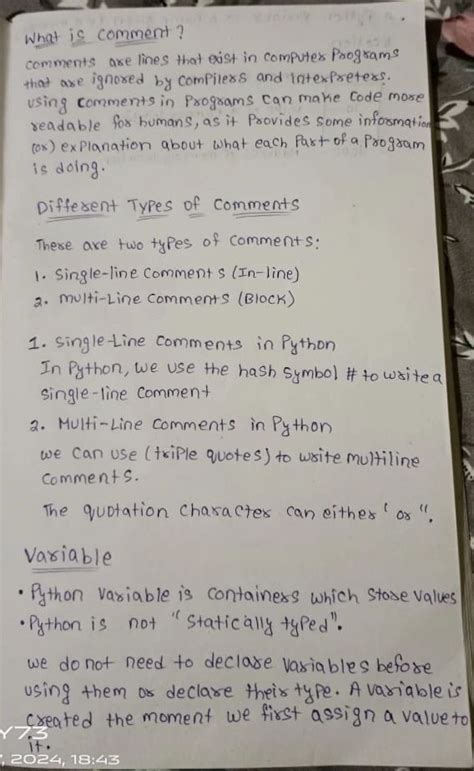 What is comment?
comments are lines that exist in computer Programs
that are ignored by compilers and Interpreters.
using comments in Programs can make code more
readable for humans, as it Provides some information
(or) explanation about what each Part of a Program
is doing.
Different Types of Comments
There are two types of comments:
1. Single-line Comments (In-line)
2. Multi-Line Comments (Block)
1. Single-Line Comments in Python
In Python, we use the hash symbol # to write a
single-line comment
2. Multi-Line Comments in Python
we can use (triple quotes) to write multiline
Comments.
The quotation character can either ' or ".
Variable
• Python Variable is containers which store values
• Python is not "Statically typed".
we do not need to declare variables before
using them or declare their type. A variable is
created the moment we first assign a value to
it.
Y73
, 2024, 18:43